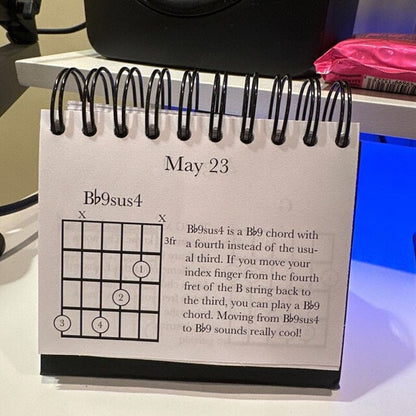 May 23
B♭9sus4
X X
3fr
1
2
3 4
B♭9sus4 is a B♭9 chord with
a fourth instead of the usu-
al third. If you move your
index finger from the fourth
fret of the B string back to
the third, you can play a B♭9
chord. Moving from B♭9sus4
to B♭9 sounds really cool!